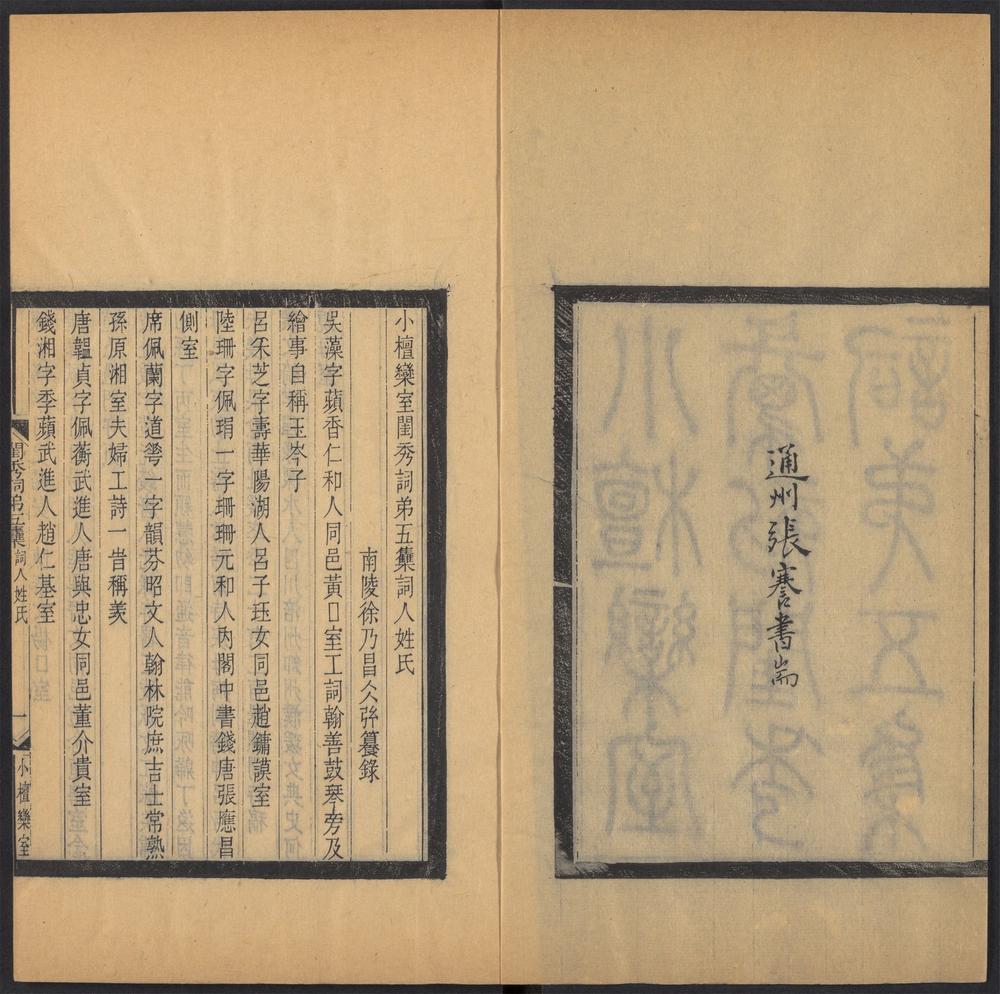 通州張謇書耑
小檀欒室閨秀詞弟五集詞人姓氏
南陵徐乃昌仌弅纂錄
吳藻字蘋香仁和人同邑黃□室工詞翰善鼓琴旁及
繪事自稱玉岑子
呂采芝字壽華陽湖人呂子珏女同邑趙鏞謨室
陸珊字佩琄一字珊珊元和人內閣中書錢唐張應昌
側室
席佩蘭字道華一字韻芬昭文人翰林院庶吉士常熟
孫原湘室夫婦工詩一旹稱羨
唐韞貞字佩蘅武進人唐與忠女同邑董介貴室
錢湘字季蘋武進人趙仁基室
閨秀詞弟五集 詞人姓氏
一
小檀欒室